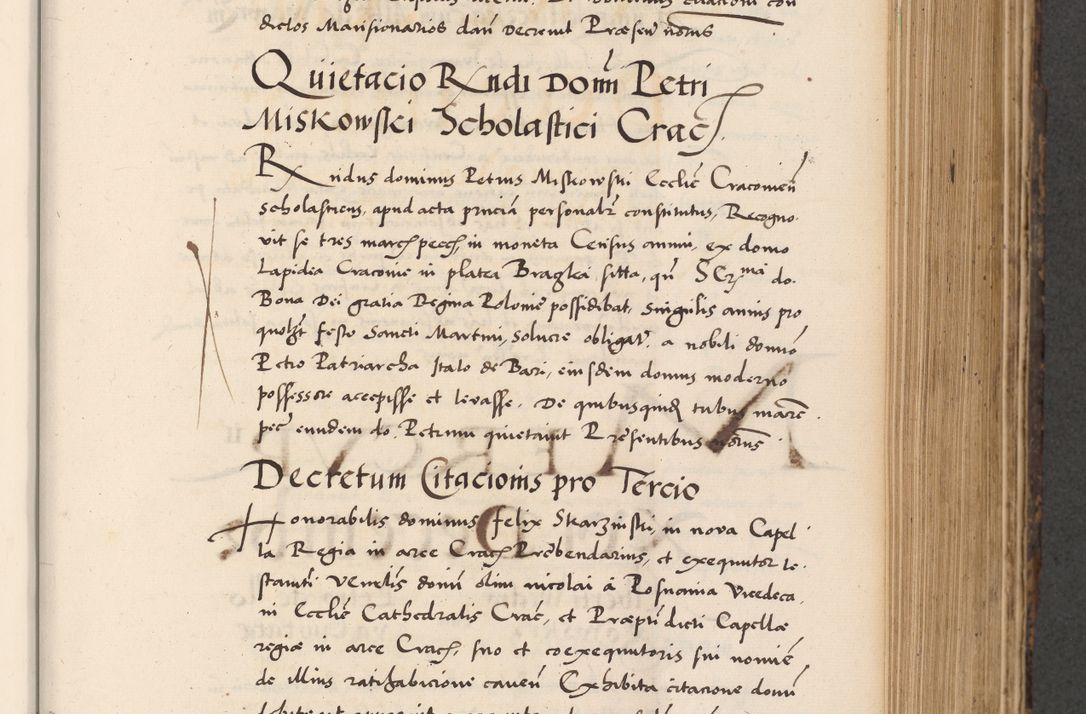 dictos Mansionarios dari Decrevit Præsen notus
Quietacio Rndi Domi Petri
Miskowski Scholastici Crac
Rndus dominus Petrus Miskowski Ecclie Cracovien
scholasticus, apud acta pncia personalr constitutus, Recogno-
vit se tres march pecch, in moneta Census annui, ex domo
Lapidea Cracovie in platea Braczka sitta, qn SCrma do.
Bona Dei gratia Regina Polonie possidebat, singulis annis pro
quolzt festo Sancti Martini, soluere obligatr, a nobili domio
Petro Patriarcha Italo de Bari, eiusdem domus moderno
possessore accepisse et levasse. De quibusquid tribus marc
pec eundem do. Petrum quietavit Presentibus notus
Decretum Citacionis pro Tercio
Honorabilis dominus Felix Skarzinski, in nova Capel-
la Regia in arce Crac Prebendarius, et exequutor te-
stamti Venelis domi olim Nicolai a Posnania Vicedeca.
ni Ecclie Cathedralis Crac, et Præpti dicti Capellæ
regiæ in arce Crac, suo et coexequutoris sui nomie
de illius ratihabicione caven Exhibita citacione domi